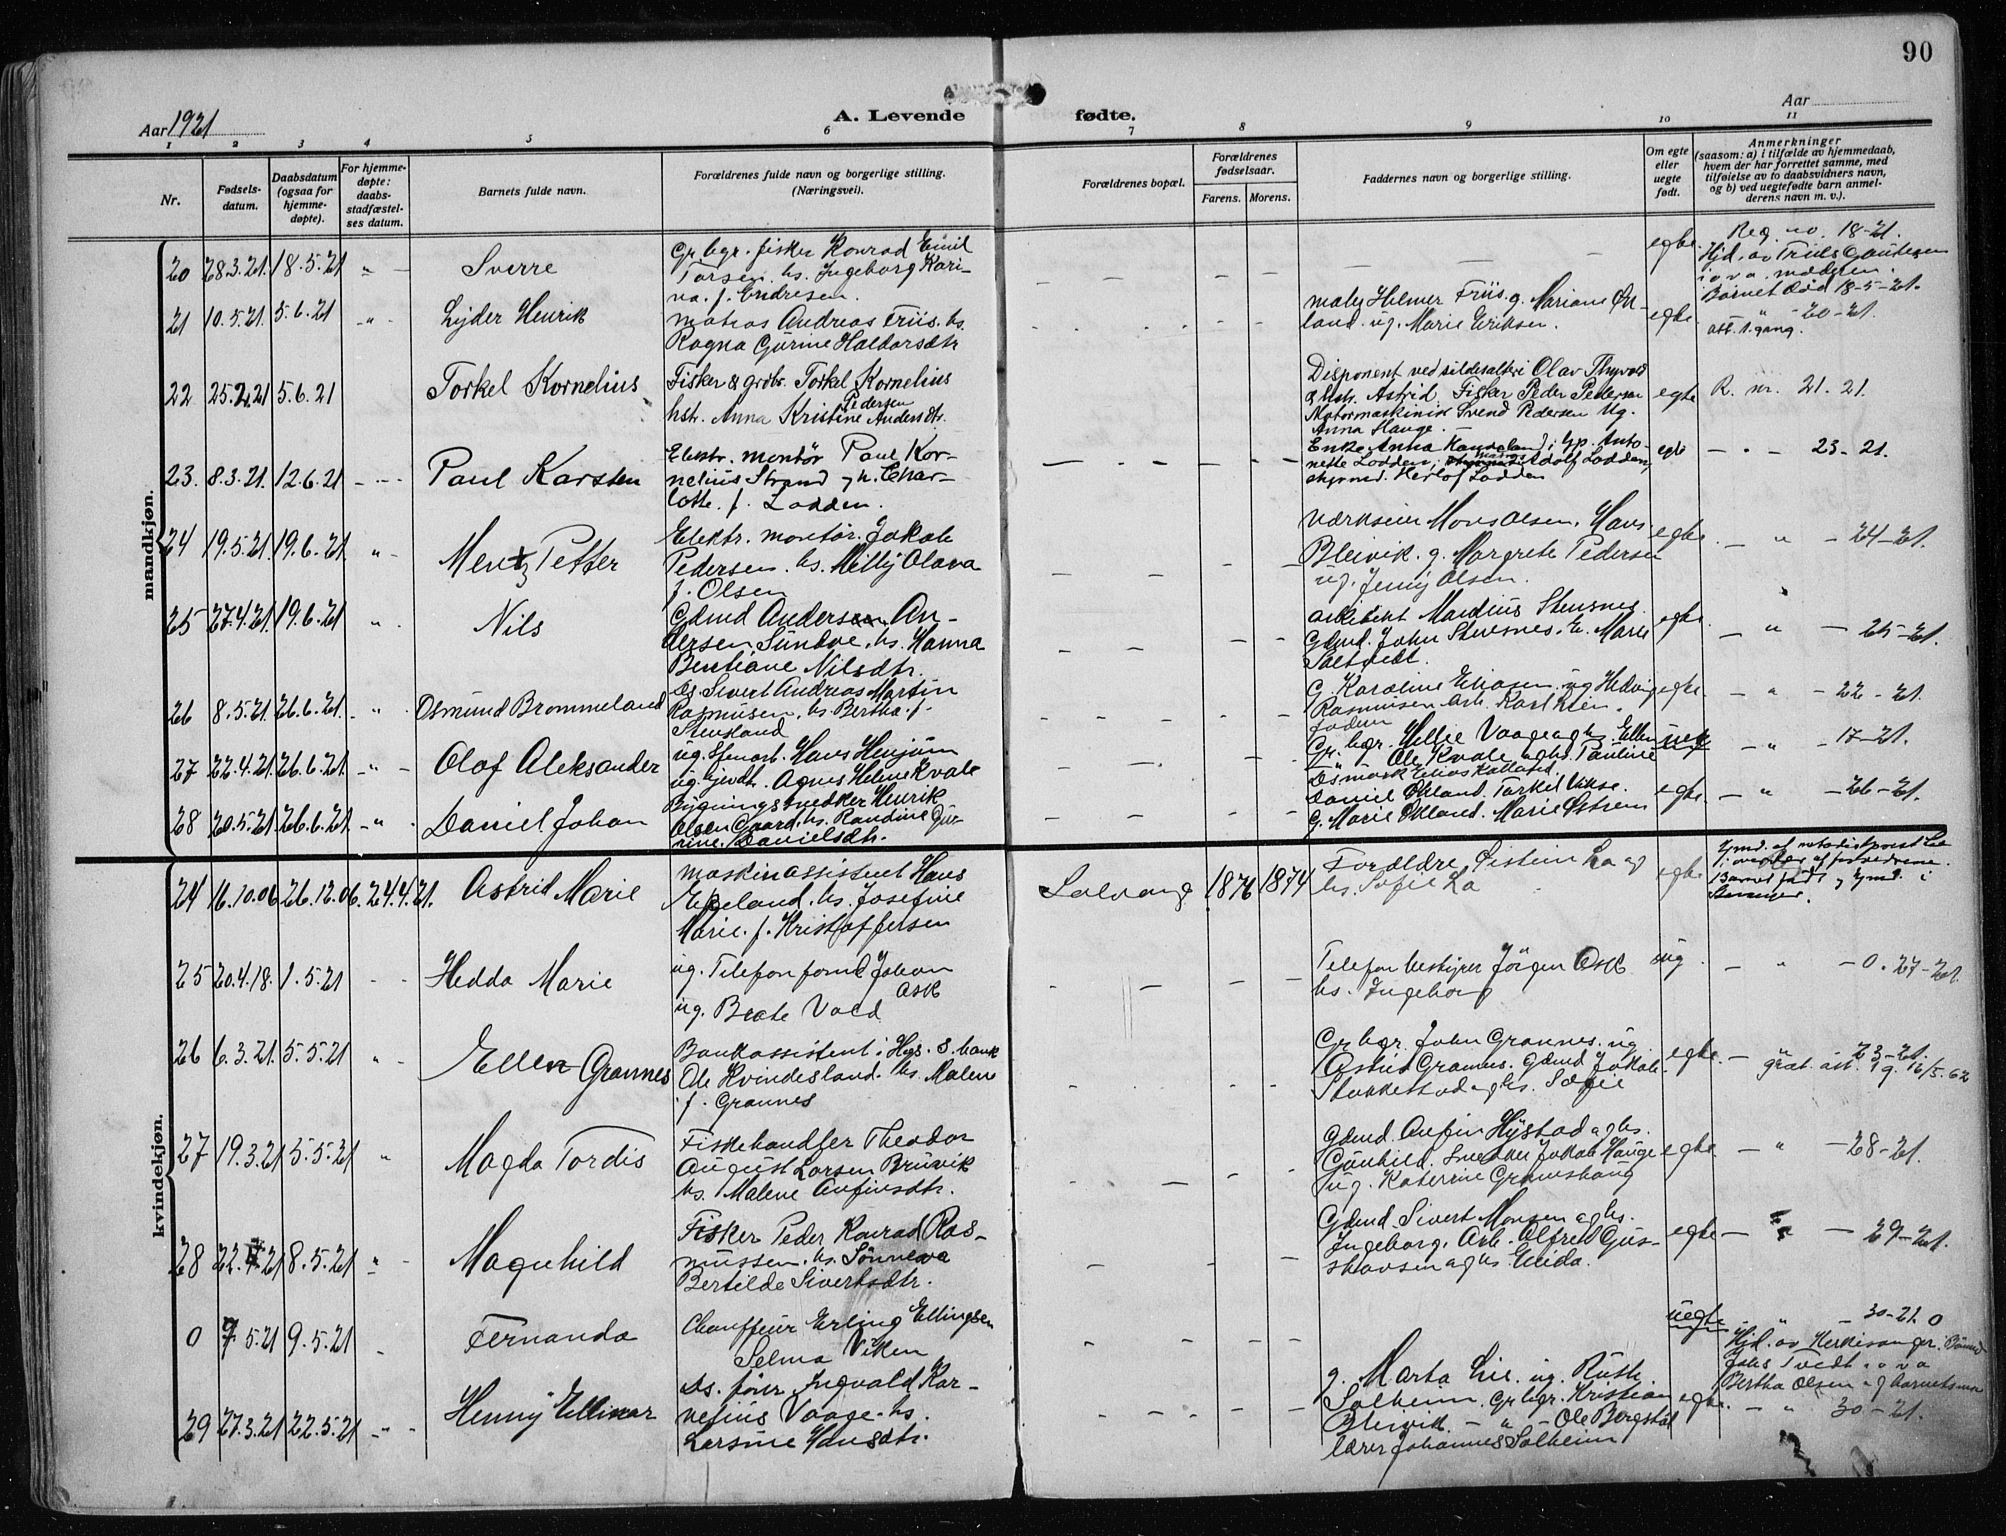 90
Aar 1921
A. Levende fødte.
Aar
1 2 3 4 5 6 7 8 9 10 11
Nr.
Fødsels-
datum.
Daabsdatum
(ogsaa for
hjemme-
døpte).
For hjemme-
døpte:
daabs-
stadfæstel-
ses datum.
Barnets fulde navn.
Forældrenes fulde navn og borgerlige stilling.
(Næringsvei).
Forældrenes bopæl.
Forældrenes
fødselsaar.
Farens. Morens.
Faddernes navn og borgerlige stilling.
Om egte
eller
uegte
født.
Anmerkninger
(saasom: a) i tilfælde av hjemmedaab,
hvem der har forrettet samme, med
tilføielse av to daabsvidners navn,
og b) ved uegtefødte barn anmel-
derens navn m. v.).
mandkjøn.
20 28.3.21. 18.5.21 Sverre
Gr. bgr. fisker Konrad Emil
Torsen. hs. Ingeborg Kari-
na. f. Endresen.
egte.
Reg. no. 18-21.
Hjd. av Truls Gautesen
i o v a. moderen.
Barnet død 18-5-21.
21 10.5.21. 5.6.21 Lyder Henrik
matros Andreas Friis. hs.
Ragna Gurine Haldorsdtr
Helmer Friis. g. Mariane
land. ug. Marie Eriksen.
egte
" 20-21.
att. 1. gang.
22 25.2.21 5.6.21 Torkel Kornelius
Fisker & grdbr. Torkel Kornelius
Pedersen
hstr. Anna Kristine Andersdtr.
Disponent ved sildesalteri Olav Thorvald
& hstr. Astrid. Fisker Peder Pedersen
Motormaskinist Svend Pedersen Ug.
Anna Hauge.
egte
R. nr. 21. 21.
23. 8.3.21. 12.6.21 Paul Karsten
Elektr. montør Paul Kor-
nelius Strand og h. Char-
lotte. f. Lodden.
Enke Anna Gp. Anto-
nette Lodden; Adolf Lodden,
styrmd. Herlof Lodden
egte
- " - 23-21.
24 19.5.21. 19.6.21. Mentz Petter
Elektr. montør. Jakob
Pedersen. hs. Milly Olava
f. Olsen
Mons Olsen. Hans
Bleivik. g. Margrete Pedersen
ug. Jenny Olsen.
egte.
- " - 24-21.
25 27.4.21. 19.6.21 Nils
Gdmd Andersen An-
dersen Sundve. hs. Hanna
Bertiane Nilsdtr.
arkitekt Mardius Stensnes.
Gdmd. John Stensnes. E. Marie
Saltvedt.
egte.
- " - 25-21.
26 8.5.21. 26.6.21. Osmund Brommeland
Ds. Sivert Andreas Martin
Rasmusen. hs. Bertha. f.
Stensland
G. Karoline Eliasen. ug Hedvig
Rasmusen arb. Karl
egte.
- " - 22-21.
27 22.4.21. 26.6.21. Olaf Aleksander
ug. Hans Henjum
ug. tjendt. Agnes Helene Kvale
Gr. bgr. Mellie Vaage og hs. Ellen
Gr. " Ole Kvale og hs. Pauline
ueg
- " - 17-21.
28 20.5.21. 26.6.21. Daniel Johan
Bygningssnedker Henrik
Olsen Gaard. hs. Randine Gu-
rine. Danielsdtr.
Daniel Økland. Torkel Vikse.
G. Marie Økland. Marie
egte.
- " - 26-21.
kvindekjøn.
24 16.10.06 26.12.06. 24.4.21. Astrid Marie
maskinassistent Hans
Ekeland. hs. Josefine
Marie. f. Kristoffersen
Solvang 1876 1874
Forældre. Øistein Lea og
hs. Sofie Lea
egte
25 20.4.18. 1.5.21 Hedda Marie
ug. Telefonformd Johan
Ask
ug. Beate Vold
Telefonbestyrer Jørgen Ask
hs. Ingeborg
ug
- " - 0. 27-21.
26 6.3.21. 5.5.21 Ellen Grannes
Bankassistent i Hgs. S. bank
Ole Kvindesland. hs. Malene
f. Grannes
Gr. bgr. John Grannes. ug.
Astrid Grannes. Gdmd Jakob
Stokkestad og hs. Sofie
egte.
- " 23-21.
grat. att. 19. 16/5-62
27 19.3.21 5.5.21 Magda Tordis
Fiskehandler Theodor
August Larsen Bruvik
hs. Malene Anfinsdtr.
Gdmd. Anfin Hystad og hs.
Gunhild. Snedker Jakob Hauge
ug. Katerine Grønnshaug
egte.
- " - 28-21.
28 22. .21 8.5.21 Magnhild
Fisker Peder Konrad Ras-
mussen. hs. Sønneva
Bertilde Sivertsdtr.
Gdmd. Sivert Monsen og hs.
Ingeborg. Arb. Alfred Gus-
tavsen og hs. Elida.
egte
- " - 29-21.
0 9.5.21 9.5.21 Fernanda
Chauffeur Erling Ellingsen
Selma Viken
uegte
- " - 30-21. 0
Hjd. av Kirkesanger.
Tvedt i o v a
Bertha Olsen og barnetsmor
29 27.3.21 22.5.21 Henny Ellinor
Ds. fører Ingvald Kor-
nelius Vaage. hs.
Lersine Hansdtr.
g. Marta Lie. ug. Ruth
Solheim. Gr. bgr. Kristian
Bleivik. - " - Ole Bergstøl
lærer Johannes Solheim
egte.
- " 30-21.